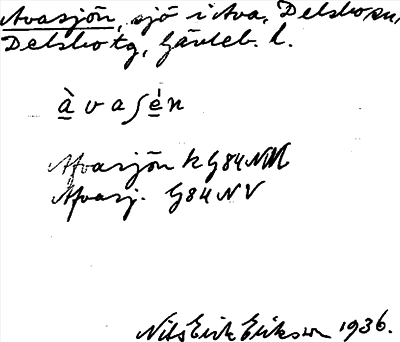 Avasjön, sjö i Ava, Delsbo sn,
Delsbo tg, Gävleb. l.
à v a ʃ é n
Afvasjön k G84NV
Afvasj. G84NV
Nils Erik Erikson 1936.